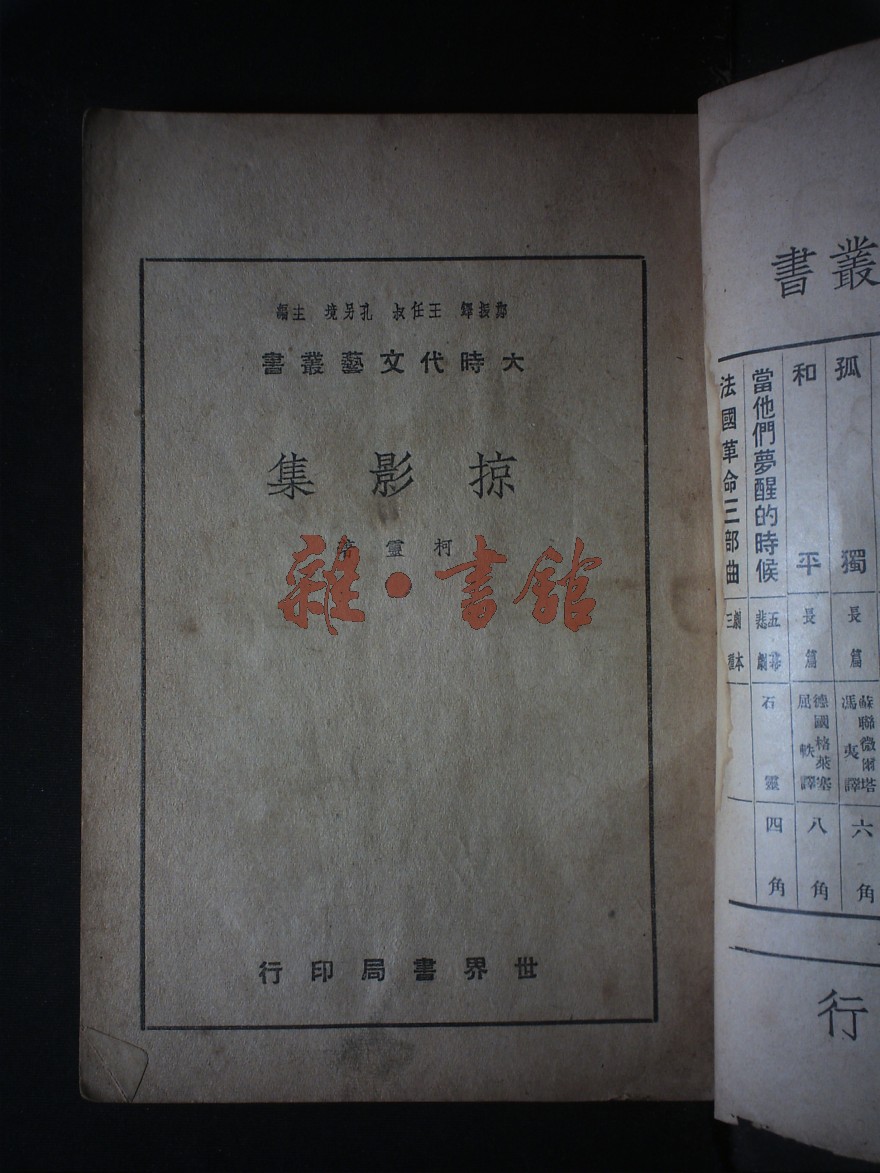 鄭振鐸 王任叔 孔另境 主編
大時代文藝叢書
掠影集
柯靈著
雜·書館
世界書局印行
叢書
孤獨 長篇 蘇聯微爾塔 馮夷譯 六角
和平 長篇 德國格萊塞 屈軼譯 八角
當他們夢醒的時候 五幕悲劇 石靈 四角
法國革命三部曲 劇本三種
行